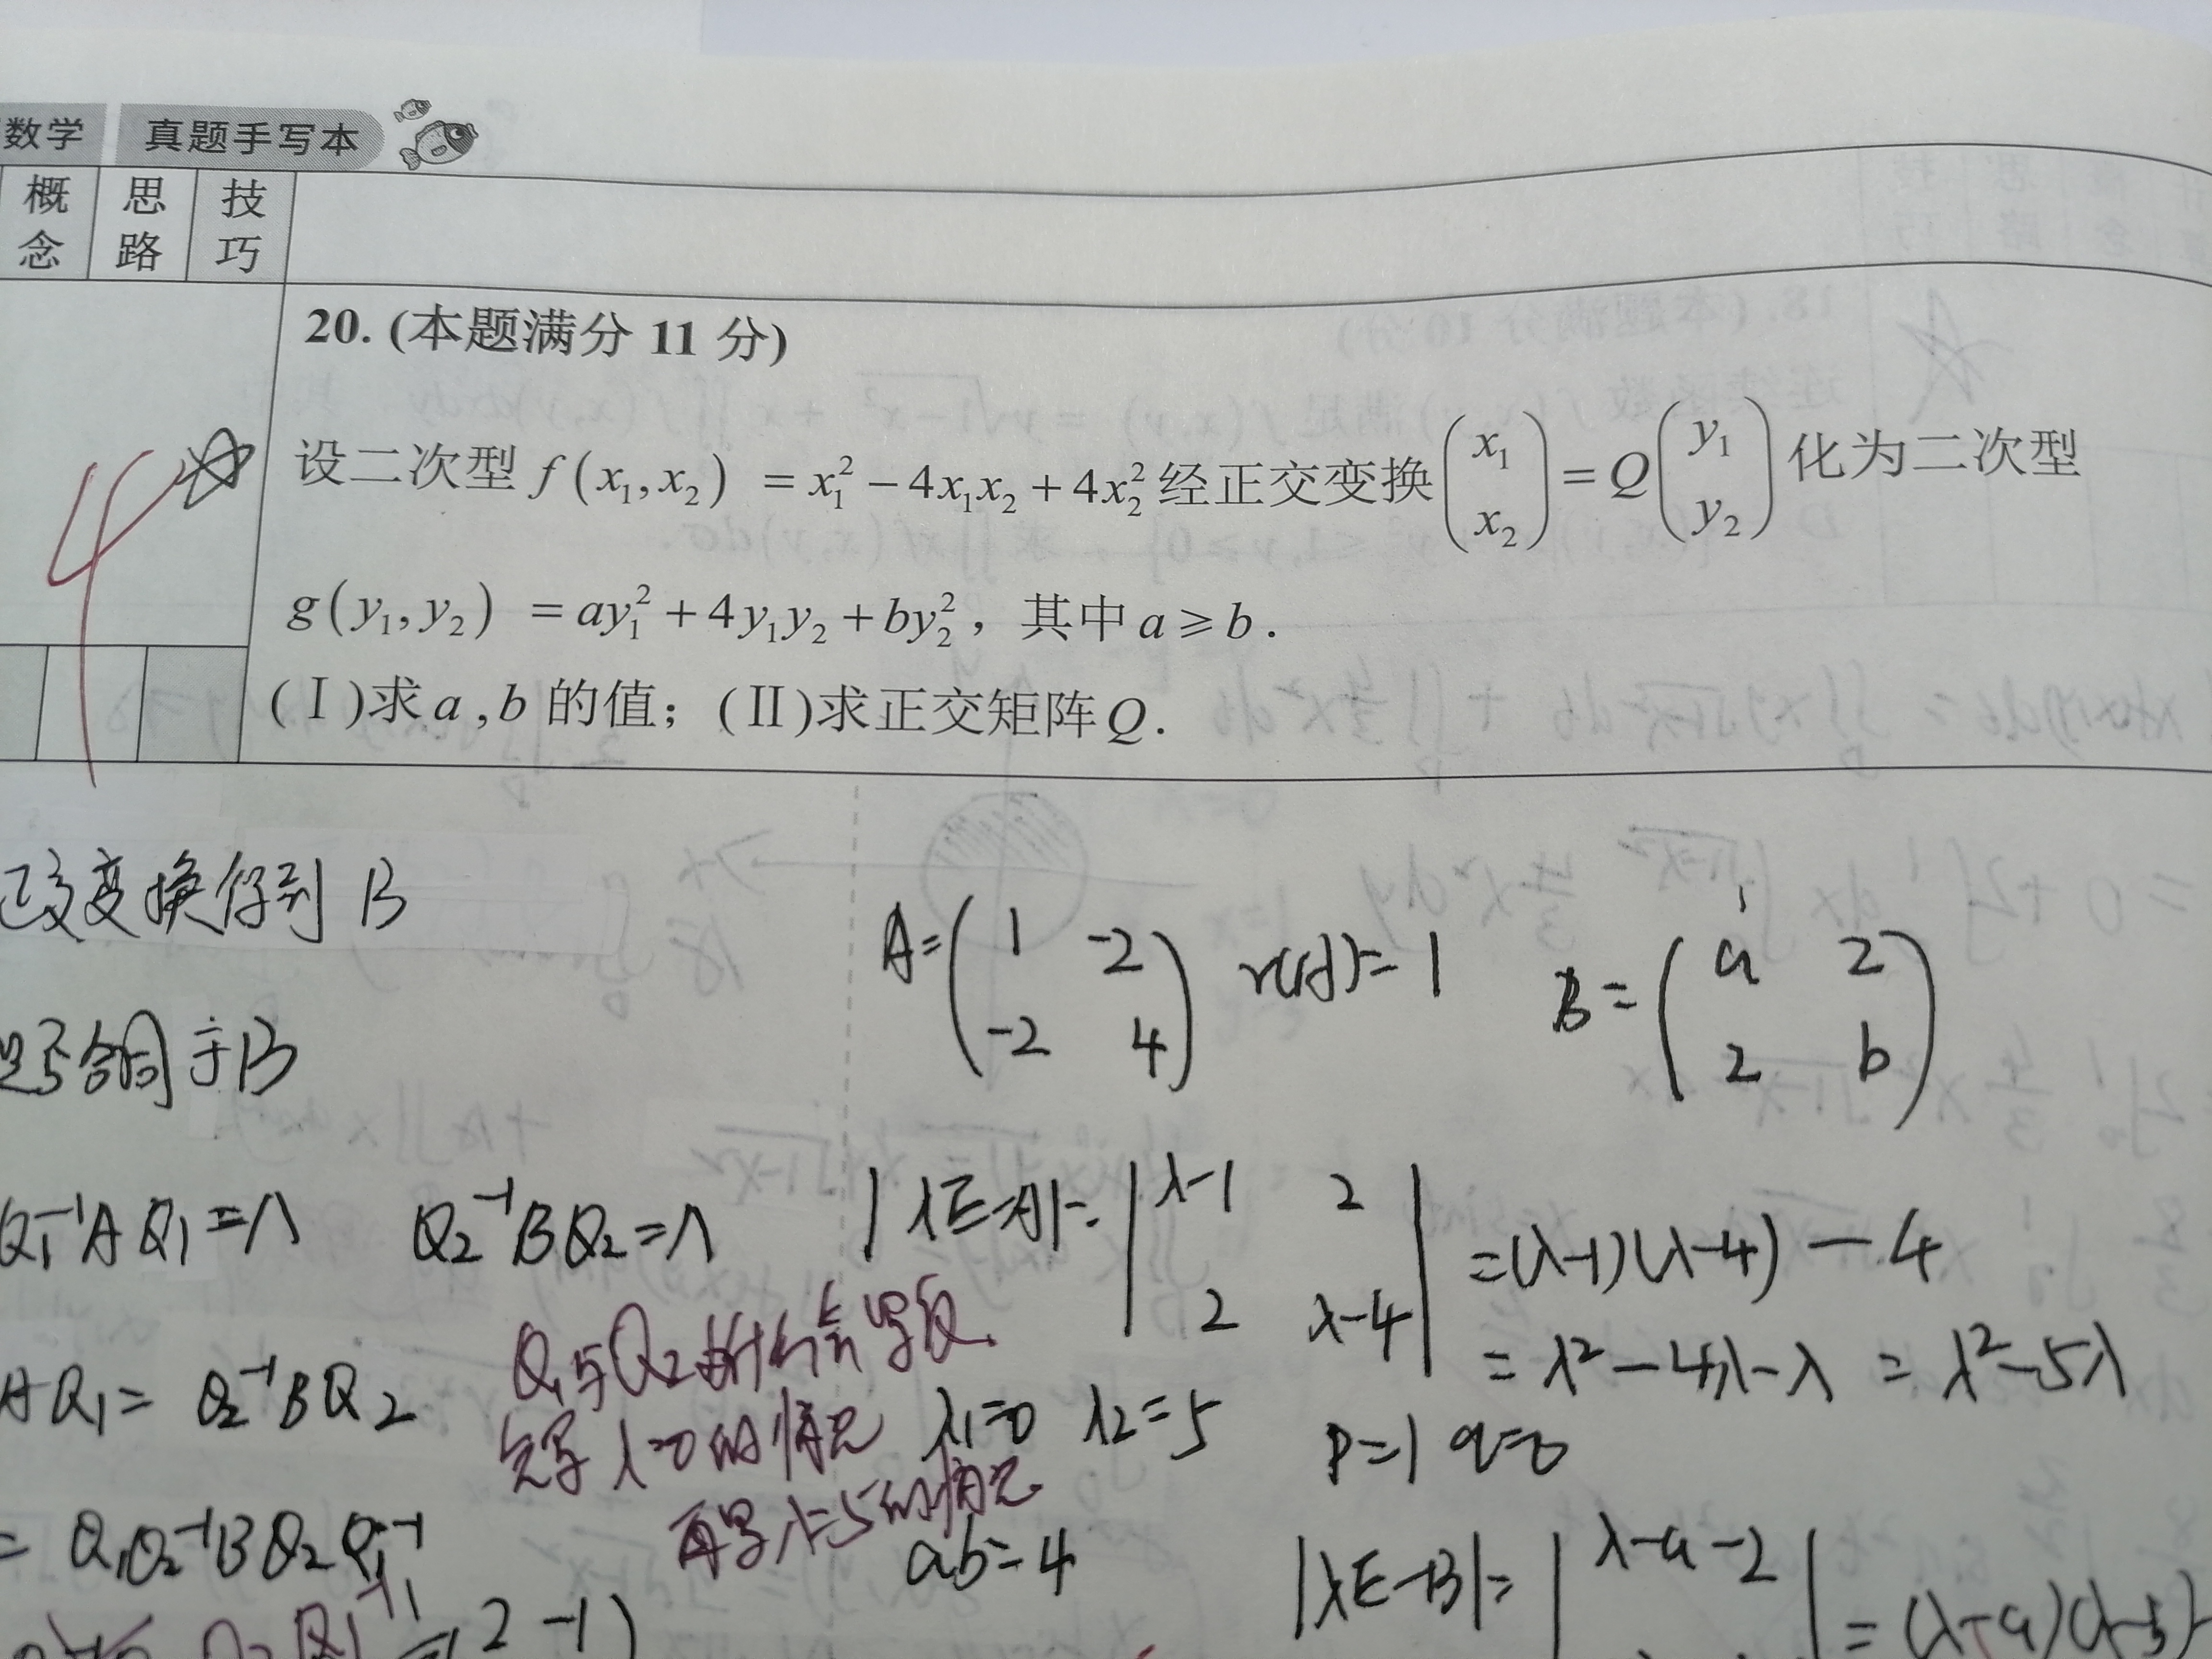 数学 真题手写本
概念 思路 技巧
20. (本题满分 11 分)
设二次型 f(x₁,x₂) = x₁² − 4x₁x₂ + 4x₂² 经正交变换 (x₁ x₂) = Q (y₁ y₂) 化为二次型
g(y₁,y₂) = ay₁² + 4y₁y₂ + by₂², 其中 a ⩾ b.
(Ⅰ)求 a,b 的值; (Ⅱ)求正交矩阵 Q.
4
变换得到 B
A= (1 -2 -2 4) r(A)=1 B= (a 2 2 b)
合同于B
Q₁⁻¹AQ₁=Λ Q₂⁻¹BQ₂=Λ
|λE-A|= |λ-1 2 2 λ-4| =(λ-1)(λ-4)-4
=λ²-4λ-λ =λ²-5λ
AQ₁= Q₂⁻¹BQ₂
Q₁与Q₂
先写λ=0的情况
再写λ=5的情况
λ₁=0 λ₂=5 P=1 q=0
= Q₁Q₂⁻¹BQ₂Q₁⁻¹
ab=4
|λE-B|= |λ-a -2 | =(λ-a)(λ-b)-
2 -1)